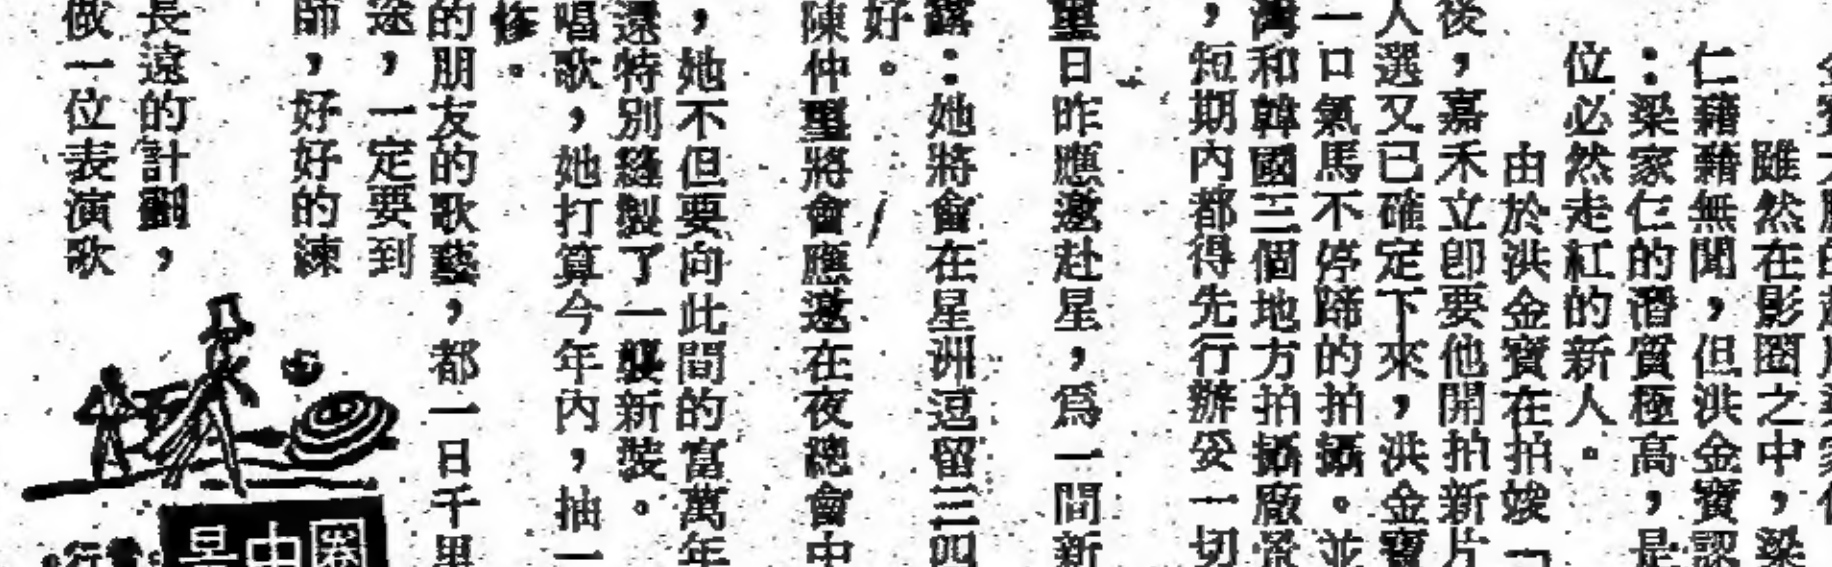 雖然在影圈之中，梁
仁藉藉無聞，但洪金寶認
：梁家仁的潛質極高，是
位必然走紅的新人。
由於洪金寶在拍竣「
後，嘉禾立即要他開拍新片
人選又已確定下來，洪金寶
一口氣馬不停蹄的拍攝。並
灣和韓國三個地方拍攝廠景
，短期內都得先行辦妥一切
里日昨應邀赴星，為一間新
露：她將會在星洲逗留三四
好。
陳仲里將會應邀在夜總會中
，她不但要向此間的富萬年
還特別縫製了一襲新裝。
唱歌，她打算今年內，抽一
修。
的朋友的歌藝，都一日千里
途，一定要到
師，好好的練
長遠的計劃，
做一位表演歌
圈中